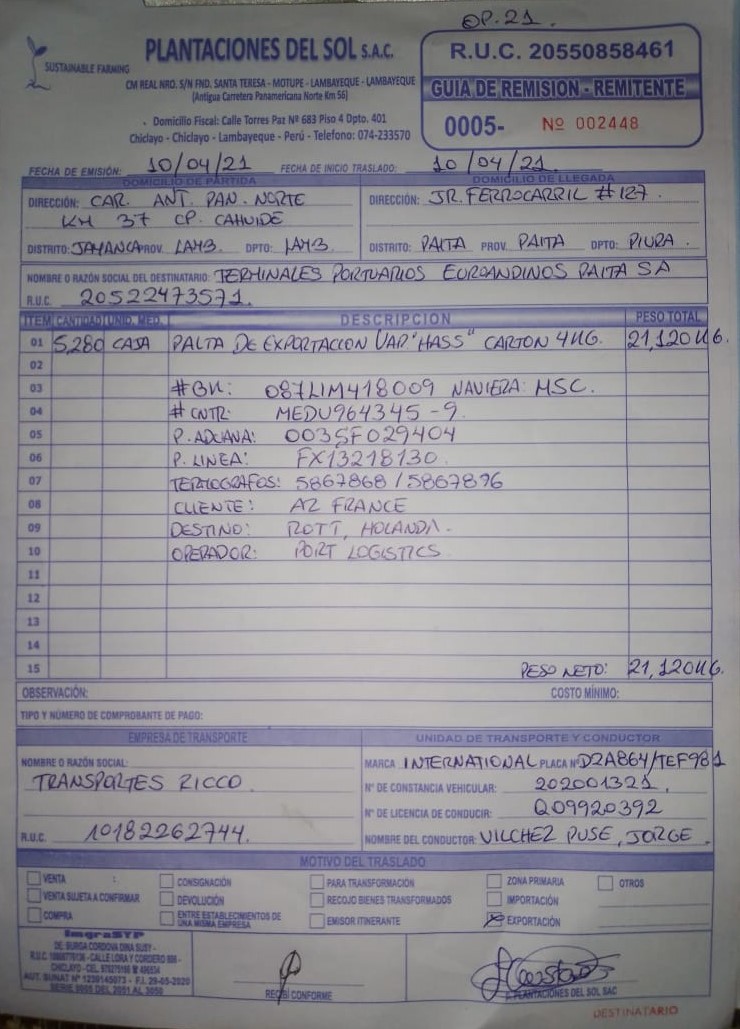 OP. 21.
SUSTAINABLE FARMING
PLANTACIONES DEL SOL S.A.C.
CM REAL NRO. S/N FND. SANTA TERESA - MOTUPE - LAMBAYEQUE - LAMBAYEQUE
(Antigua Carretera Panamericana Norte Km 56)
Domicilio Fiscal: Calle Torres Paz Nº 683 Piso 4 Dpto. 401
Chiclayo - Chiclayo - Lambayeque - Perú - Telefono: 074-233570
R.U.C. 20550858461
GUIA DE REMISION - REMITENTE
0005- Nº 002448
FECHA DE EMISIÓN: 10/04/21 FECHA DE INICIO TRASLADO: 10/04/21.
DOMICILIO DE PARTIDA
DIRECCIÓN: CAR. ANT. PAN. NORTE
KM 37 CP. CAHUIDE
DISTRITO: JAYANCA PROV. LAMB. DPTO: LAMB.
DOMICILIO DE LLEGADA
DIRECCIÓN: JR. FERROCARRIL # 127.
DISTRITO: PAITA PROV. PAITA DPTO: PIURA.
NOMBRE O RAZÓN SOCIAL DEL DESTINATARIO: TERMINALES PORTUARIOS EUROANDINOS PAITA SA
R.U.C. 20522473571.
ITEM CANTIDAD UNID. MED. DESCRIPCION PESO TOTAL
01 5,280 CAJA PALTA DE EXPORTACION VAR "HASS" CARTON 4KG. 21,120KG.
02
03 #BK: 087LIM418009 NAVIERA: MSC.
04 # CNTR: MEDU964345-9.
05 P. ADUANA: 0035F029404
06 P. LINEA: FX13218130.
07 TERMOGRAFOS: 5867868 / 5867896
08 CLIENTE: AZ FRANCE
09 DESTINO: ROTT, HOLANDA.
10 OPERADOR: PORT LOGISTICS
11
12
13
14
15 PESO NETO: 21,120KG.
OBSERVACIÓN: COSTO MÍNIMO:
TIPO Y NÚMERO DE COMPROBANTE DE PAGO:
EMPRESA DE TRANSPORTE
NOMBRE O RAZÓN SOCIAL:
TRANSPORTES RICCO.
R.U.C. 10182262744.
UNIDAD DE TRANSPORTE Y CONDUCTOR
MARCA INTERNATIONAL PLACA Nº D2A864/TEF981
Nº DE CONSTANCIA VEHICULAR: 202001321.
Nº DE LICENCIA DE CONDUCIR: Q09920392
NOMBRE DEL CONDUCTOR: VILCHEZ PUSE, JORGE.
MOTIVO DEL TRASLADO
VENTA CONSIGNACIÓN PARA TRANSFORMACIÓN ZONA PRIMARIA OTROS
VENTA SUJETA A CONFIRMAR DEVOLUCIÓN RECOJO BIENES TRANSFORMADOS IMPORTACIÓN
COMPRA ENTRE ESTABLECIMIENTOS DE UNA MISMA EMPRESA EMISOR ITINERANTE EXPORTACIÓN
ImgraSYP
DE: BURGA CORDOVA DINA SUSY -
CALLE LORA Y CORDERO
AUT. SUNAT Nº 1239145073 - F.I. 29-05-2020
SERIE 0005 DEL 2051 AL 3050
RECIBÍ CONFORME
P. PLANTACIONES DEL SOL SAC
DESTINATARIO